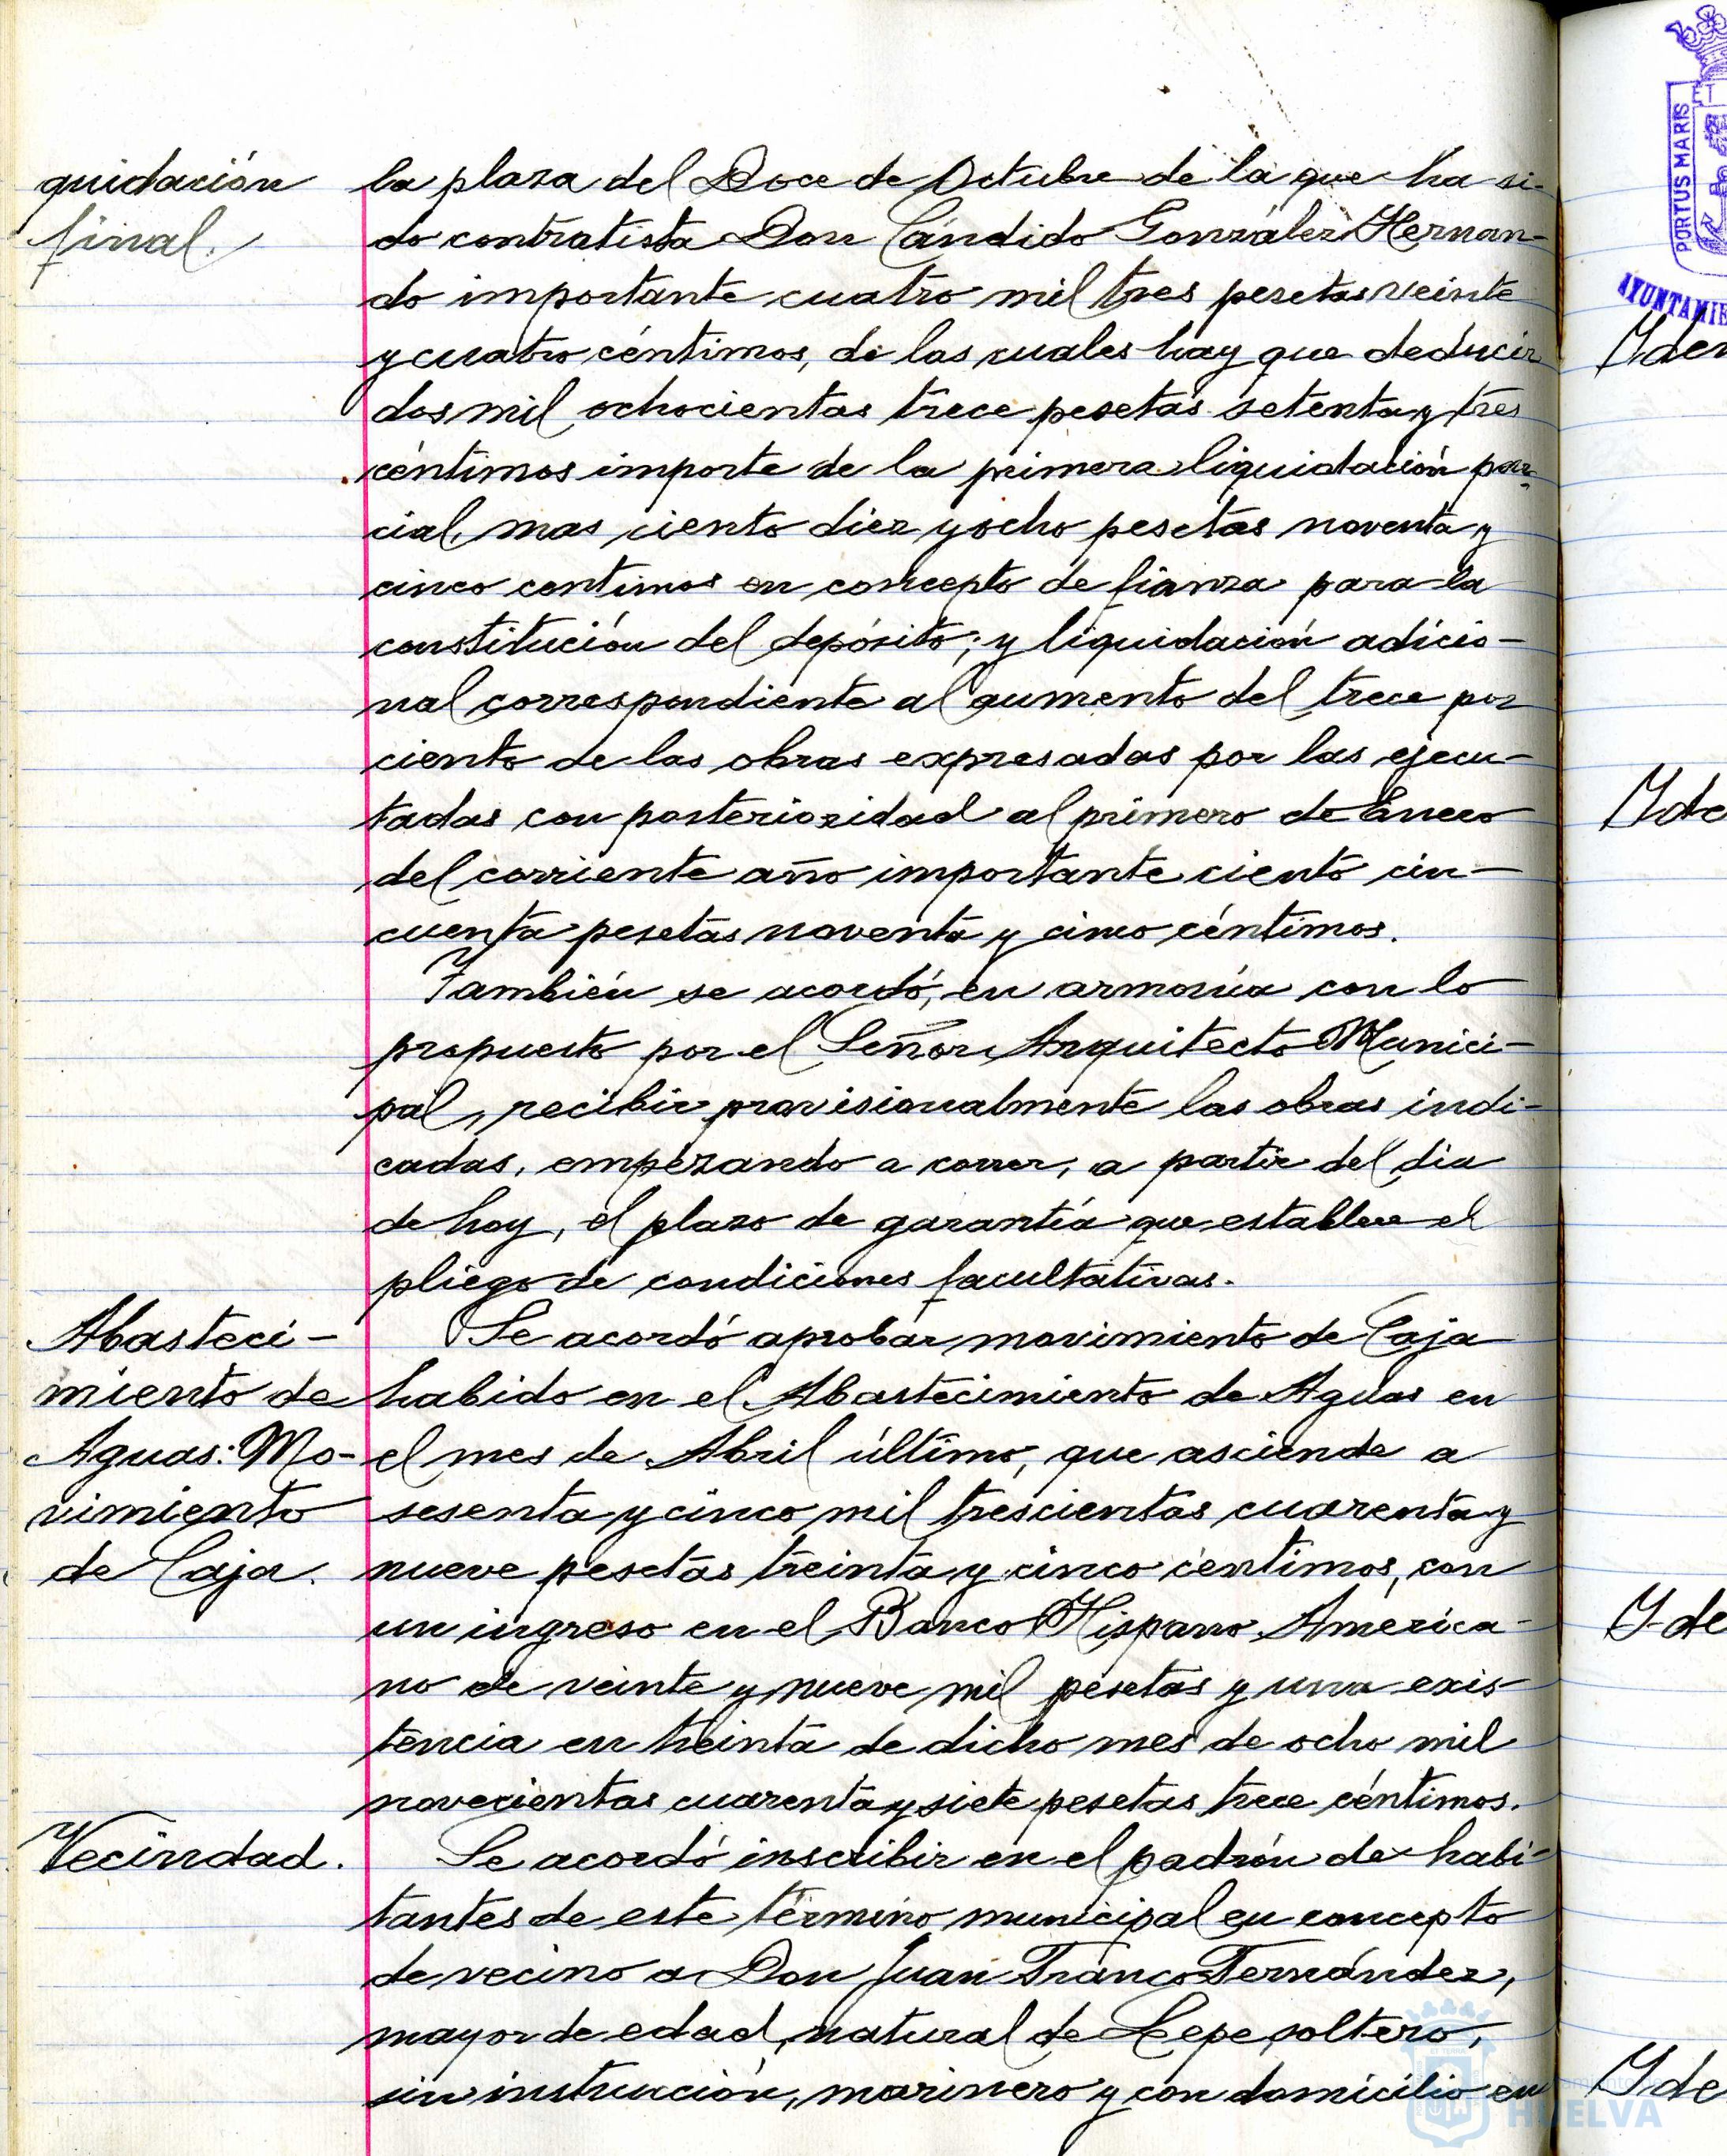 quidación
final.
la plaza del Doce de Octubre de la que ha si-
do contratista Don Cándido González Hernan-
do importante cuatro mil tres pesetas veinte
y cuatro céntimos, de las cuales hay que deducir
dos mil ochocientas trece pesetas setenta y tres
céntimos importe de la primera liquidación par-
cial, mas ciento diez y ocho pesetas noventa y
cinco centimos en concepto de fianza para la
constitución del depósito; y liquidación adicio-
nal correspondiente al aumento del trece por
ciento de las obras expresadas por las ejecu-
tadas con posterioridad al primero de Enero
del corriente año importante ciento cin-
cuenta pesetas noventa y cinco céntimos.
También se acordó, en armonía con lo
propuesto por el Señor Arquitecto Munici-
pal, recibir provisionalmente las obras indi-
cadas, empezando a correr, a partir del dia
de hoy, el plazo de garantía que establece el
pliego de condiciones facultativas.
Abasteci-
miento de
Aguas: Mo-
vimiento
de Caja.
Se acordó aprobar movimiento de Caja
habido en el Abastecimiento de Aguas en
el mes de Abril último, que asciende a
sesenta y cinco mil trescientas cuarenta y
nueve pesetas treinta y cinco centimos, con
un ingreso en el Banco Hispano America-
no de veinte y nueve mil pesetas y una exis-
tencia en treinta de dicho mes de ocho mil
novecientas cuarenta y siete pesetas trece céntimos.
Vecindad.
Se acordó inscribir en el padrón de habi-
tantes de este término municipal en concepto
de vecino a Don Juan Franco Fernández,
mayor de edad, natural de Lepe, soltero,
sin instrucción, marinero y con domicilio en
PORTUS MARIS
AYUNTAMIE
Iden
Ide
Ide
Ide
HUELVA